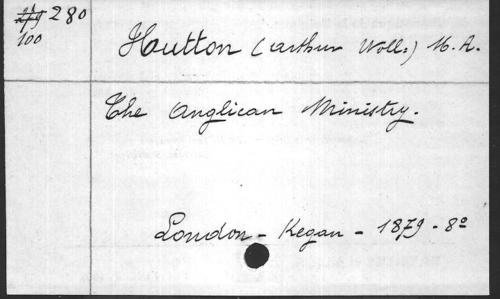 280
100
Hutton (Arthur Woll.) M.A.
The Anglican Ministry.
London - Kegan - 1879 - 8º